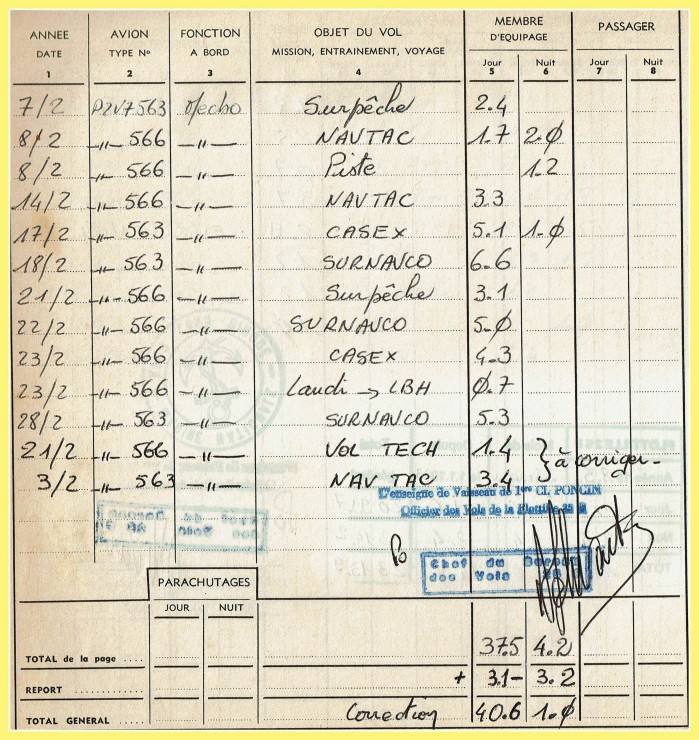 ANNEE DATE AVION TYPE N° FONCTION A BORD OBJET DU VOL MISSION, ENTRAINEMENT, VOYAGE MEMBRE D'EQUIPAGE PASSAGER
Jour Nuit Jour Nuit
1 2 3 4 5 6 7 8
7/2 P2V7 563 Mecho Surpêche 2.4
8/2 -"- 566 -"- NAVTAC 1.7 2.0
8/2 -"- 566 -"- Piste 1.2
14/2 -"- 566 -"- NAVTAC 3.3
17/2 -"- 563 -"- CASEX 5.1 1.0
18/2 -"- 563 -"- SURNAVCO 6.6
21/2 -"- 566 -"- Surpêche 3.1
22/2 -"- 566 -"- SURNAVCO 5.0
23/2 -"- 566 -"- CASEX 4.3
23/2 -"- 566 -"- Landi → LBH 0.7
28/2 -"- 563 -"- SURNAVCO 5.3
21/2 -"- 566 -"- VOL TECH 1.4 } à corriger-
3/2 -"- 563 -"- NAV TAC 3.4
L'enseigne de Vaisseau de 1ère Cl. PONCIN
Officier des Vols de la Flottille 25 F
Po
Chef du Bureau
des Vols
PARACHUTAGES
JOUR NUIT
TOTAL de la page .... 37.5 4.2
REPORT .... + 3.1- 3.2
TOTAL GENERAL .... Correction 40.6 1.0